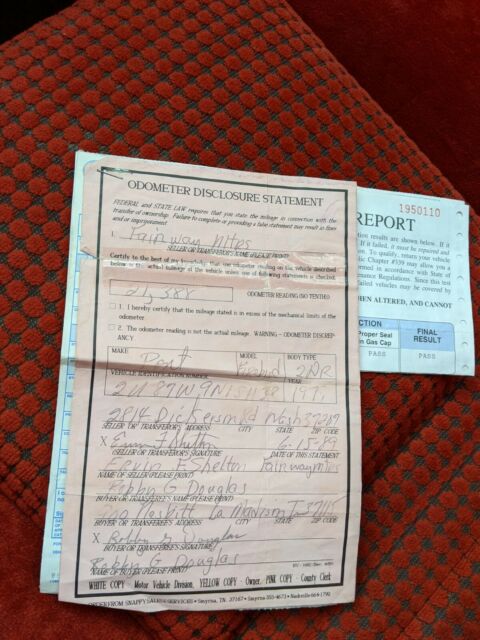 ODOMETER DISCLOSURE STATEMENT
FEDERAL and STATE LAW requires that you state the mileage in connection with the
transfer of ownership. Failure to complete or providing a false statement may result in fines
and/or imprisonment
I, Fairway Mtrs
SELLER OR TRANSFEROR'S NAME (PLEASE PRINT)
Certify to the best of my knowledge that the odometer reading on the vehicle described
below is the actual mileage of the vehicle unless one of following statements is checked.
ODOMETER READING (NO TENTHS)
1. I hereby certify that the mileage stated is in excess of the mechanical limits of the
odometer.
2. The odometer reading is not the actual mileage. WARNING - ODOMETER DISCREP-
ANCY
MAKE MODEL BODY TYPE
Pont Firebird 2DR
VEHICLE IDENTIFICATION NUMBER
2814 Dickerson Rd Nash 37207
SELLER OR TRANSFEROR'S ADDRESS CITY STATE ZIP CODE
X Ervin F Shelton 6-15-89
SELLER OR TRANSFEROR'S SIGNATURE DATE OF THIS STATEMENT
Ervin F Shelton Fairway Mtrs
NAME OF SELLER (PLEASE PRINT)
Bobby G Douglas
BUYER OR TRANSFEREE'S NAME (PLEASE PRINT)
Madison 37115
BUYER OR TRANSFEREE'S ADDRESS CITY STATE ZIP CODE
X Bobby G Douglas
BUYER OR TRANSFEREE'S SIGNATURE
Bobby G Douglas
NAME OF BUYER (PLEASE PRINT)
WHITE COPY - Motor Vehicle Division, YELLOW COPY - Owner, PINK COPY - County Clerk
ORDER FROM SNAPPY SALES & SERVICES • Smyrna, TN. 37167 • Smyrna 355-4673 • Nashville 664-1792
1950110
REPORT
tion results are shown below. If it
If failed, it must be repaired and
on. To qualify, return your vehicle
lic Chapter #339 may allow you a
formed in accordance with State of
nance Regulations. Since this test
failed vehicles may be covered by
HEN ALTERED, AND CANNOT
CTION FINAL
RESULT
Proper Seal
n Gas Cap
PASS PASS